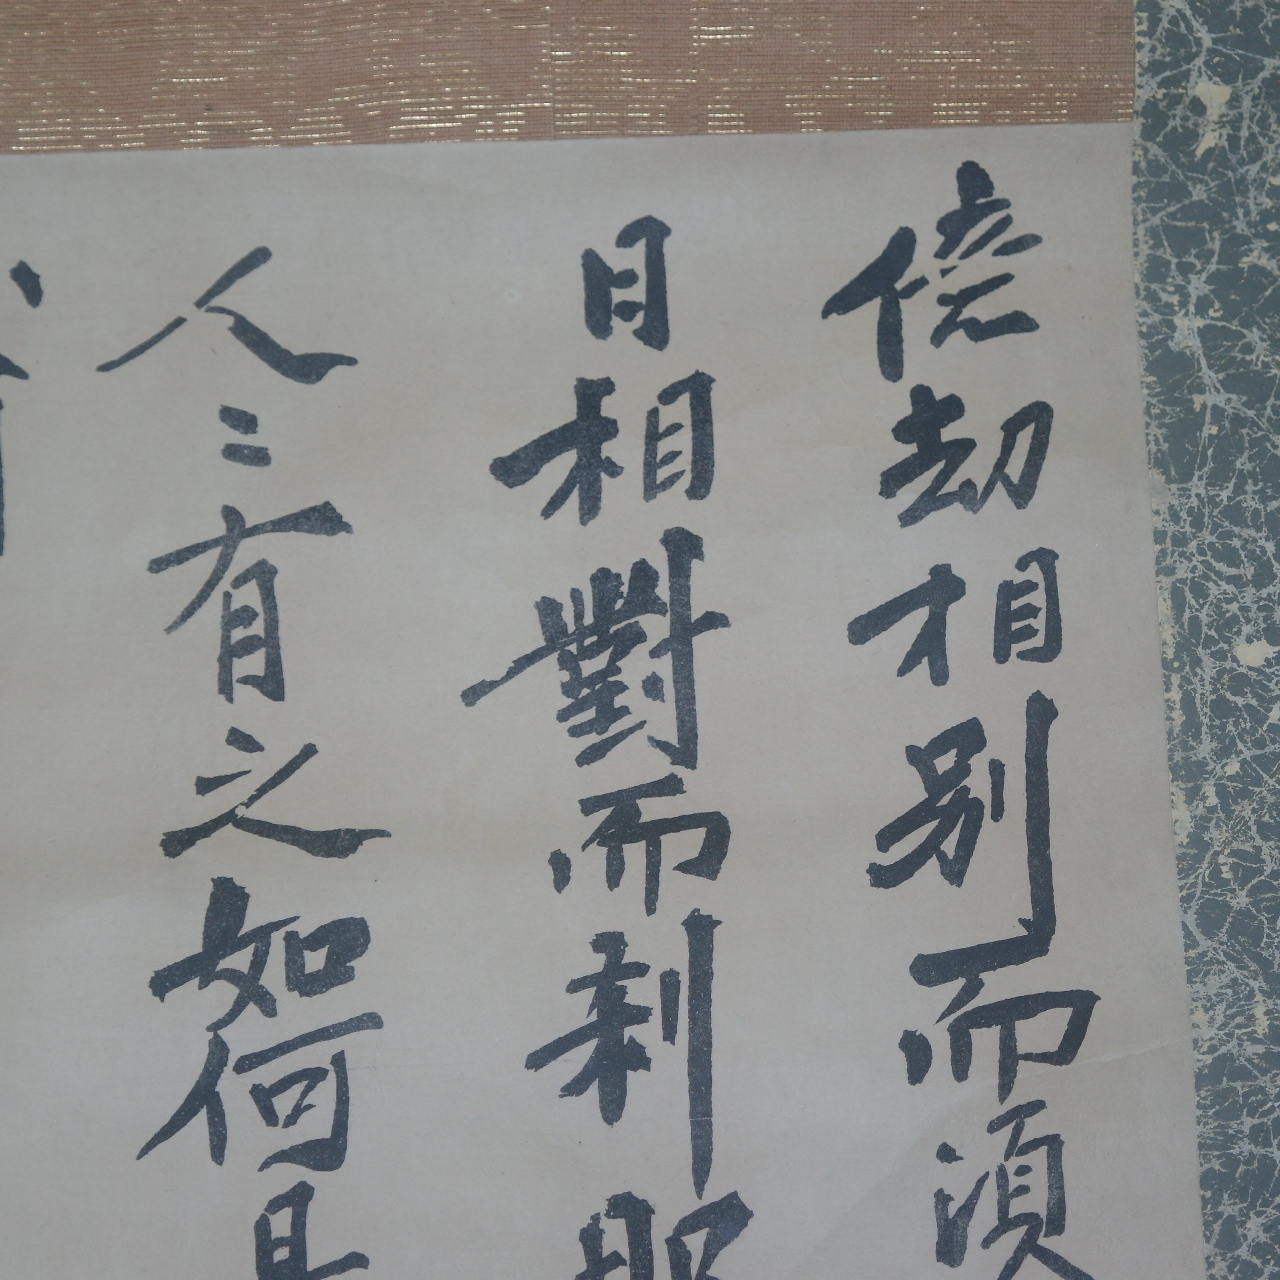 億劫相別而須
日相對而刹那
人々有之如何是